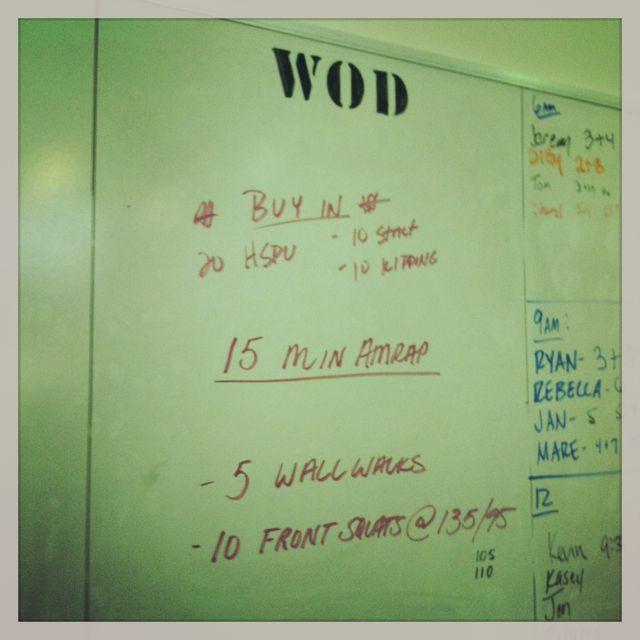 WOD
# BUY IN #
20 HSPU - 10 STRICT
- 10 KIPPING
15 MIN AMRAP
- 5 WALLWALKS
- 10 FRONT SQUATS @ 135/95
105
110
6am
Jeremy 3+4
2+8
Tom
9AM:
RYAN- 3+
REBECCA-
JAN- 5 5
MARE- 4+7
12
Kevin 9:3
Kasey
Jen